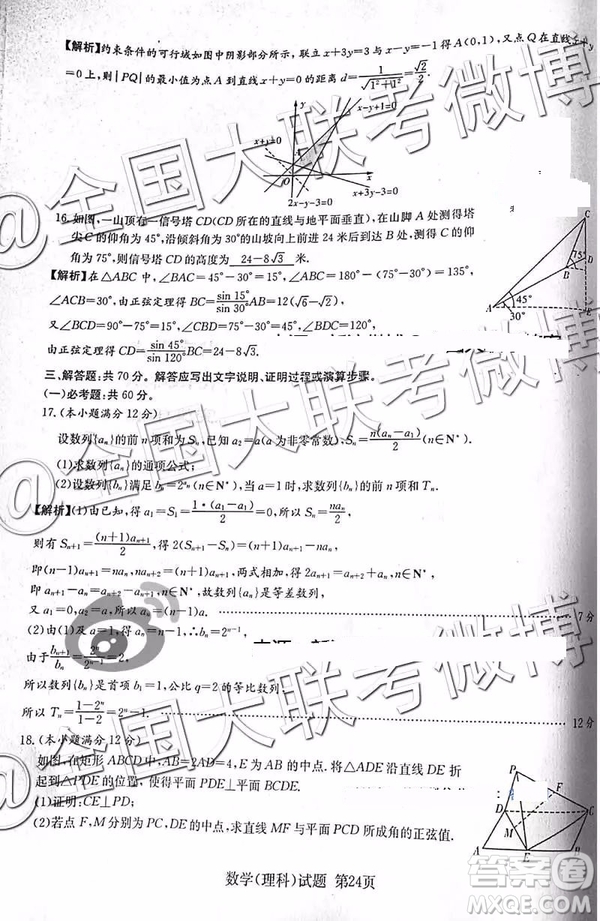 【解析】约束条件的可行域如图中阴影部分所示，联立x+3y=3与x-y=-1得A(0,1)，又点Q在直线x+y
=0上，则|PQ|的最小值为点A到直线x+y=0的距离d=1/√(1²+1²)=√2/2.
y
x-y+1=0
x+y=0
A
O
x
2x-y-3=0
x+3y-3=0
16.如图，一山顶有一信号塔CD(CD所在的直线与地平面垂直)，在山脚A处测得塔
尖C的仰角为45°，沿倾斜角为30°的山坡向上前进24米后到达B处，测得C的仰
角为75°，则信号塔CD的高度为 24-8√3 米.
C
75°
B
D
45°
30°
A
E
【解析】在△ABC中，∠BAC=45°-30°=15°，∠ABC=180°-(75°-30°)=135°，
∠ACB=30°，由正弦定理得BC=sin 15°/sin 30° AB=12(√6-√2)，
又∠BCD=90°-75°=15°，∠CBD=75°-30°=45°，∠BDC=120°，
由正弦定理得CD=sin 45°/sin 120° BC=24-8√3.
三、解答题：共70分。解答应写出文字说明、证明过程或演算步骤。
(一)必考题：共60分。
17.(本小题满分12分)
设数列{aₙ}的前n项和为Sₙ，已知a₂=a(a为非零常数)，Sₙ=n(aₙ-a₁)/2(n∈N*).
(1)求数列{aₙ}的通项公式；
(2)设数列{bₙ}满足bₙ=2^(aₙ)(n∈N*)，当a=1时，求数列{bₙ}的前n项和Tₙ.
【解析】(1)由已知，得a₁=S₁=1·(a₁-a₁)/2=0，所以Sₙ=naₙ/2，
则有Sₙ₊₁=(n+1)aₙ₊₁/2，得2(Sₙ₊₁-Sₙ)=(n+1)aₙ₊₁-naₙ，
即(n-1)aₙ₊₁=naₙ，
即aₙ₊₁-aₙ= n∈N*，所以{aₙ}是等差数列，
又a₁=0，a₂=a，所以aₙ=(n-1)a. 7分
(2)由(1)及a=1，得aₙ=n-1，∴bₙ=2ⁿ⁻¹，
由于bₙ₊₁/bₙ=2ⁿ/2ⁿ⁻¹=2，
所以数列{bₙ}是首项b₁=1，公比q=2的等比数列
所以Tₙ=(1-2ⁿ)/(1-2)=2ⁿ-1. 12分
18.(本小题满分12分)
如图，在矩形ABCD中，AB=2AD=4，E为AB的中点，将△ADE沿直线DE折
起到△PDE的位置，使得平面PDE⊥平面BCDE.
(1)证明：CE⊥PD；
(2)若点F,M分别为PC,DE的中点，求直线MF与平面PCD所成角的正弦值.
P
F
D
C
M
A
E
B
数学(理科)试题 第24页
@全国大联考微博
@全国大联考微博
@全国大联考微博
答案圈
MXQE.COM